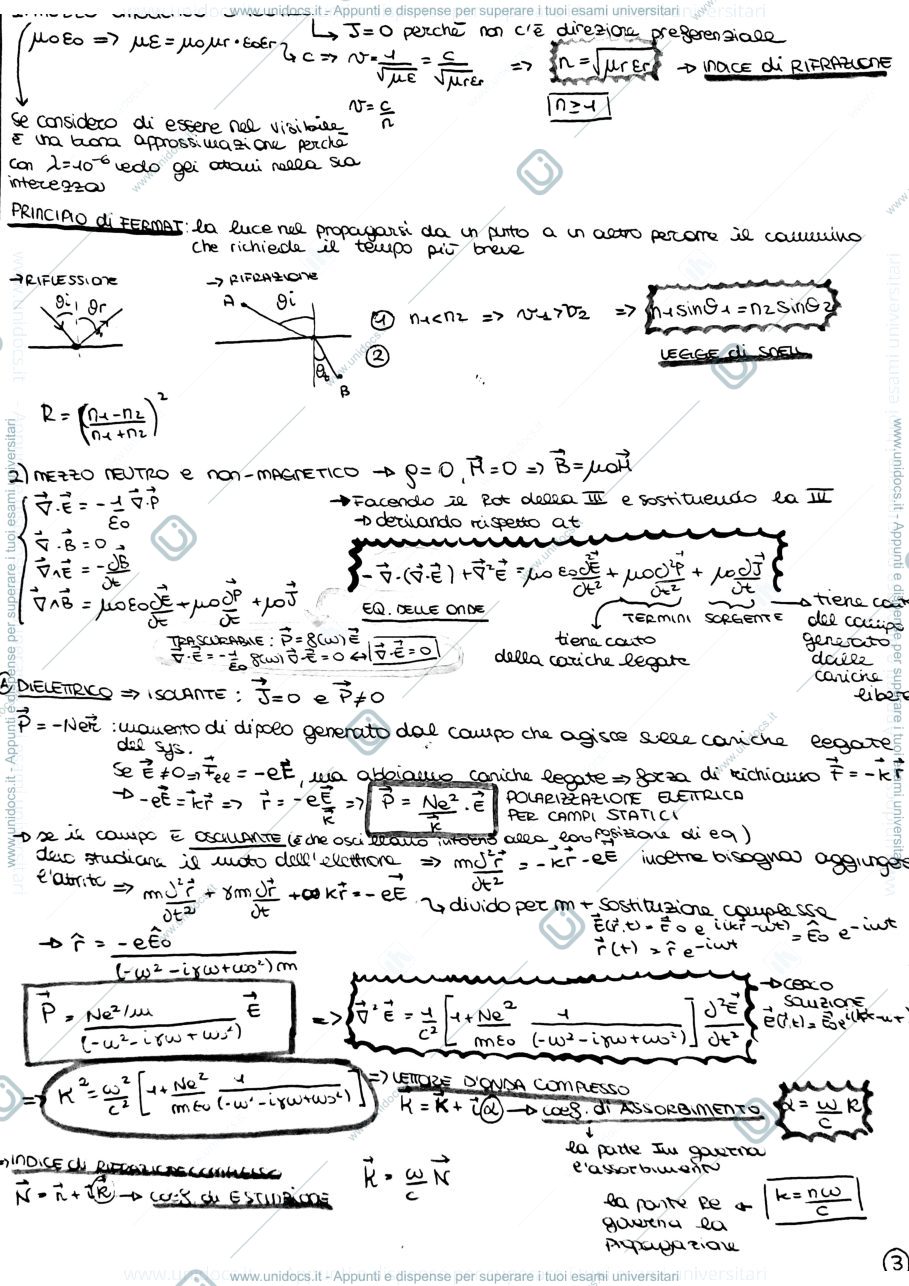 www.unidocs.it - Appunti e dispense per superare i tuoi esami universitari
μ0ε0 => με = μ0μr·ε0εr
↳ J=0 perché non c'è direzione preferenziale
↳ c => v = 1/√με = c/√μrεr => n = √μrεr → INDICE di RIFRAZIONE
v = c/n
n≥1
se considero di essere nel visibile
è una buona approssimazione perché
con λ=10^-6 vedo gli atomi nella sua
interezza
PRINCIPIO di FERMAT: la luce nel propagarsi da un punto a un altro percorre il cammino
che richiede il tempo più breve
→ RIFLESSIONE
θi θr
→ RIFRAZIONE
A θi
① n1<n2 => v1>v2 => n1sinθ1 = n2sinθ2
②
θt
B
LEGGE di SNELL
R = ((n1-n2)/(n1+n2))^2
2) MEZZO NEUTRO e non-MAGNETICO → ρ=0, M⃗=0 => B⃗=μ0H⃗
∇⃗·E⃗ = -1/ε0 ∇⃗·P⃗
∇⃗·B⃗ = 0
∇⃗∧E⃗ = -∂B⃗/∂t
∇⃗∧B⃗ = μ0ε0∂E⃗/∂t + μ0∂P⃗/∂t + μ0J⃗
→ Facendo il Rot della III e sostituendo la IV
→ derivando rispetto a t
-∇⃗·(∇⃗·E⃗) + ∇⃗²E⃗ = μ0ε0∂²E⃗/∂t² + μ0∂²P⃗/∂t² + μ0∂J⃗/∂t
EQ. DELLE ONDE
TERMINI SORGENTE
tiene conto
della cariche legate
→ tiene conto
del campo
generato
dalle
cariche
libere
TRASCURABILE: P⃗ = f(ω)E⃗
∇⃗·E⃗ = -1/ε0 f(ω)∇⃗·E⃗ = 0 ↔ ∇⃗·E⃗=0
A DIELETTRICO => ISOLANTE: J⃗=0 e P⃗≠0
P⃗ = -Ner⃗ : momento di dipolo generato dal campo che agisce sulle cariche legate
del sys.
Se E⃗≠0 => F⃗el = -eE⃗, ma abbiamo cariche legate => forza di richiamo F⃗ = -kr⃗
→ -eE⃗ = kr⃗ => r⃗ = -eE⃗/k => P⃗ = Ne²/k · E⃗
POLARIZZAZIONE ELETTRICA
PER CAMPI STATICI
→ se il campo è OSCILLANTE (è che oscillano intorno alla loro posizione di eq)
devo studiare il moto dell'elettrone => m∂²r⃗/∂t² = -kr⃗ - eE⃗ inoltre bisogna aggiungere
l'attrito => m∂²r⃗/∂t² + γm∂r⃗/∂t + kr⃗ = -eE⃗
↳ divido per m + sostituzione complessa
E⃗(r⃗,t) = E⃗0 e^i(kr-ωt) = Ê0 e^-iωt
r⃗(t) = r̂ e^-iωt
→ r̂ = -eÊ0/((-ω²-iγω+ω0²)m)
P⃗ = (Ne²/m)/(-ω²-iγω+ω0²) E⃗
=> ∇⃗²E⃗ = 1/c² [1 + Ne²/mε0 · 1/(-ω²-iγω+ω0²)] ∂²E⃗/∂t²
→ CERCO
SOLUZIONE
E⃗(r,t) = E⃗0e^i(kr-ωt)
=> K² = ω²/c² [1 + Ne²/mε0 · 1/(-ω²-iγω+ω0²)]
=> VETTORE D'ONDA COMPLESSO
K = k + iα → coeff. di ASSORBIMENTO
α = ω/c K
la parte Im governa
l'assorbimento
→ INDICE di RIFRAZIONE COMPLESSO
N⃗ = n⃗ + iK → coeff. di ESTINZIONE
K⃗ = ω/c N⃗
la parte Re
governa la
propagazione
k = nω/c
③
www.unidocs.it - Appunti e dispense per superare i tuoi esami universitari